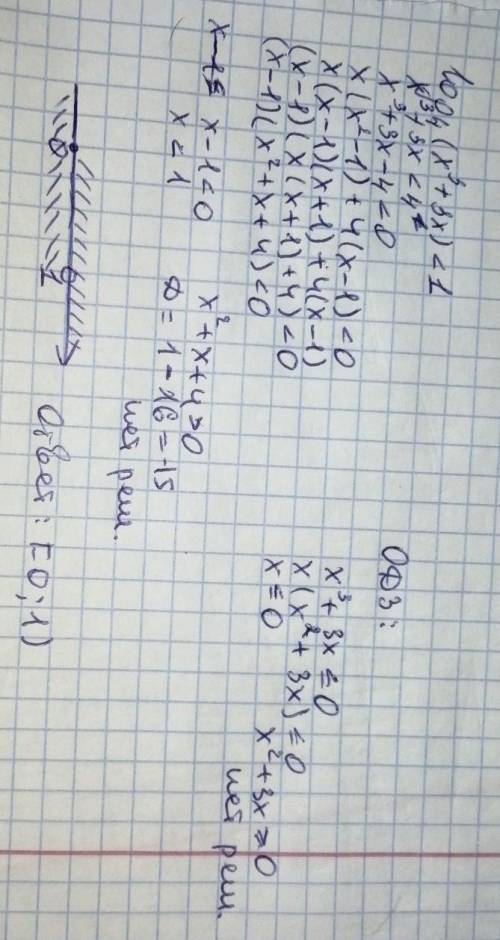 log₄(x³+3x)<1
x³+3x<4
x³+3x-4<0
x(x²-1)+4(x-1)<0
x(x-1)(x+1)+4(x-1)
(x-1)(x(x+1)+4)<0
(x-1)(x²+x+4)<0
x-1<0
x<1
x²+x+4>0
D=1-16=-15
нет реш.
ОДЗ:
x³+3x≤0
x(x²+3x)≤0
x≤0
x²+3x≥0
нет реш.
0 1
Ответ: [0;1)